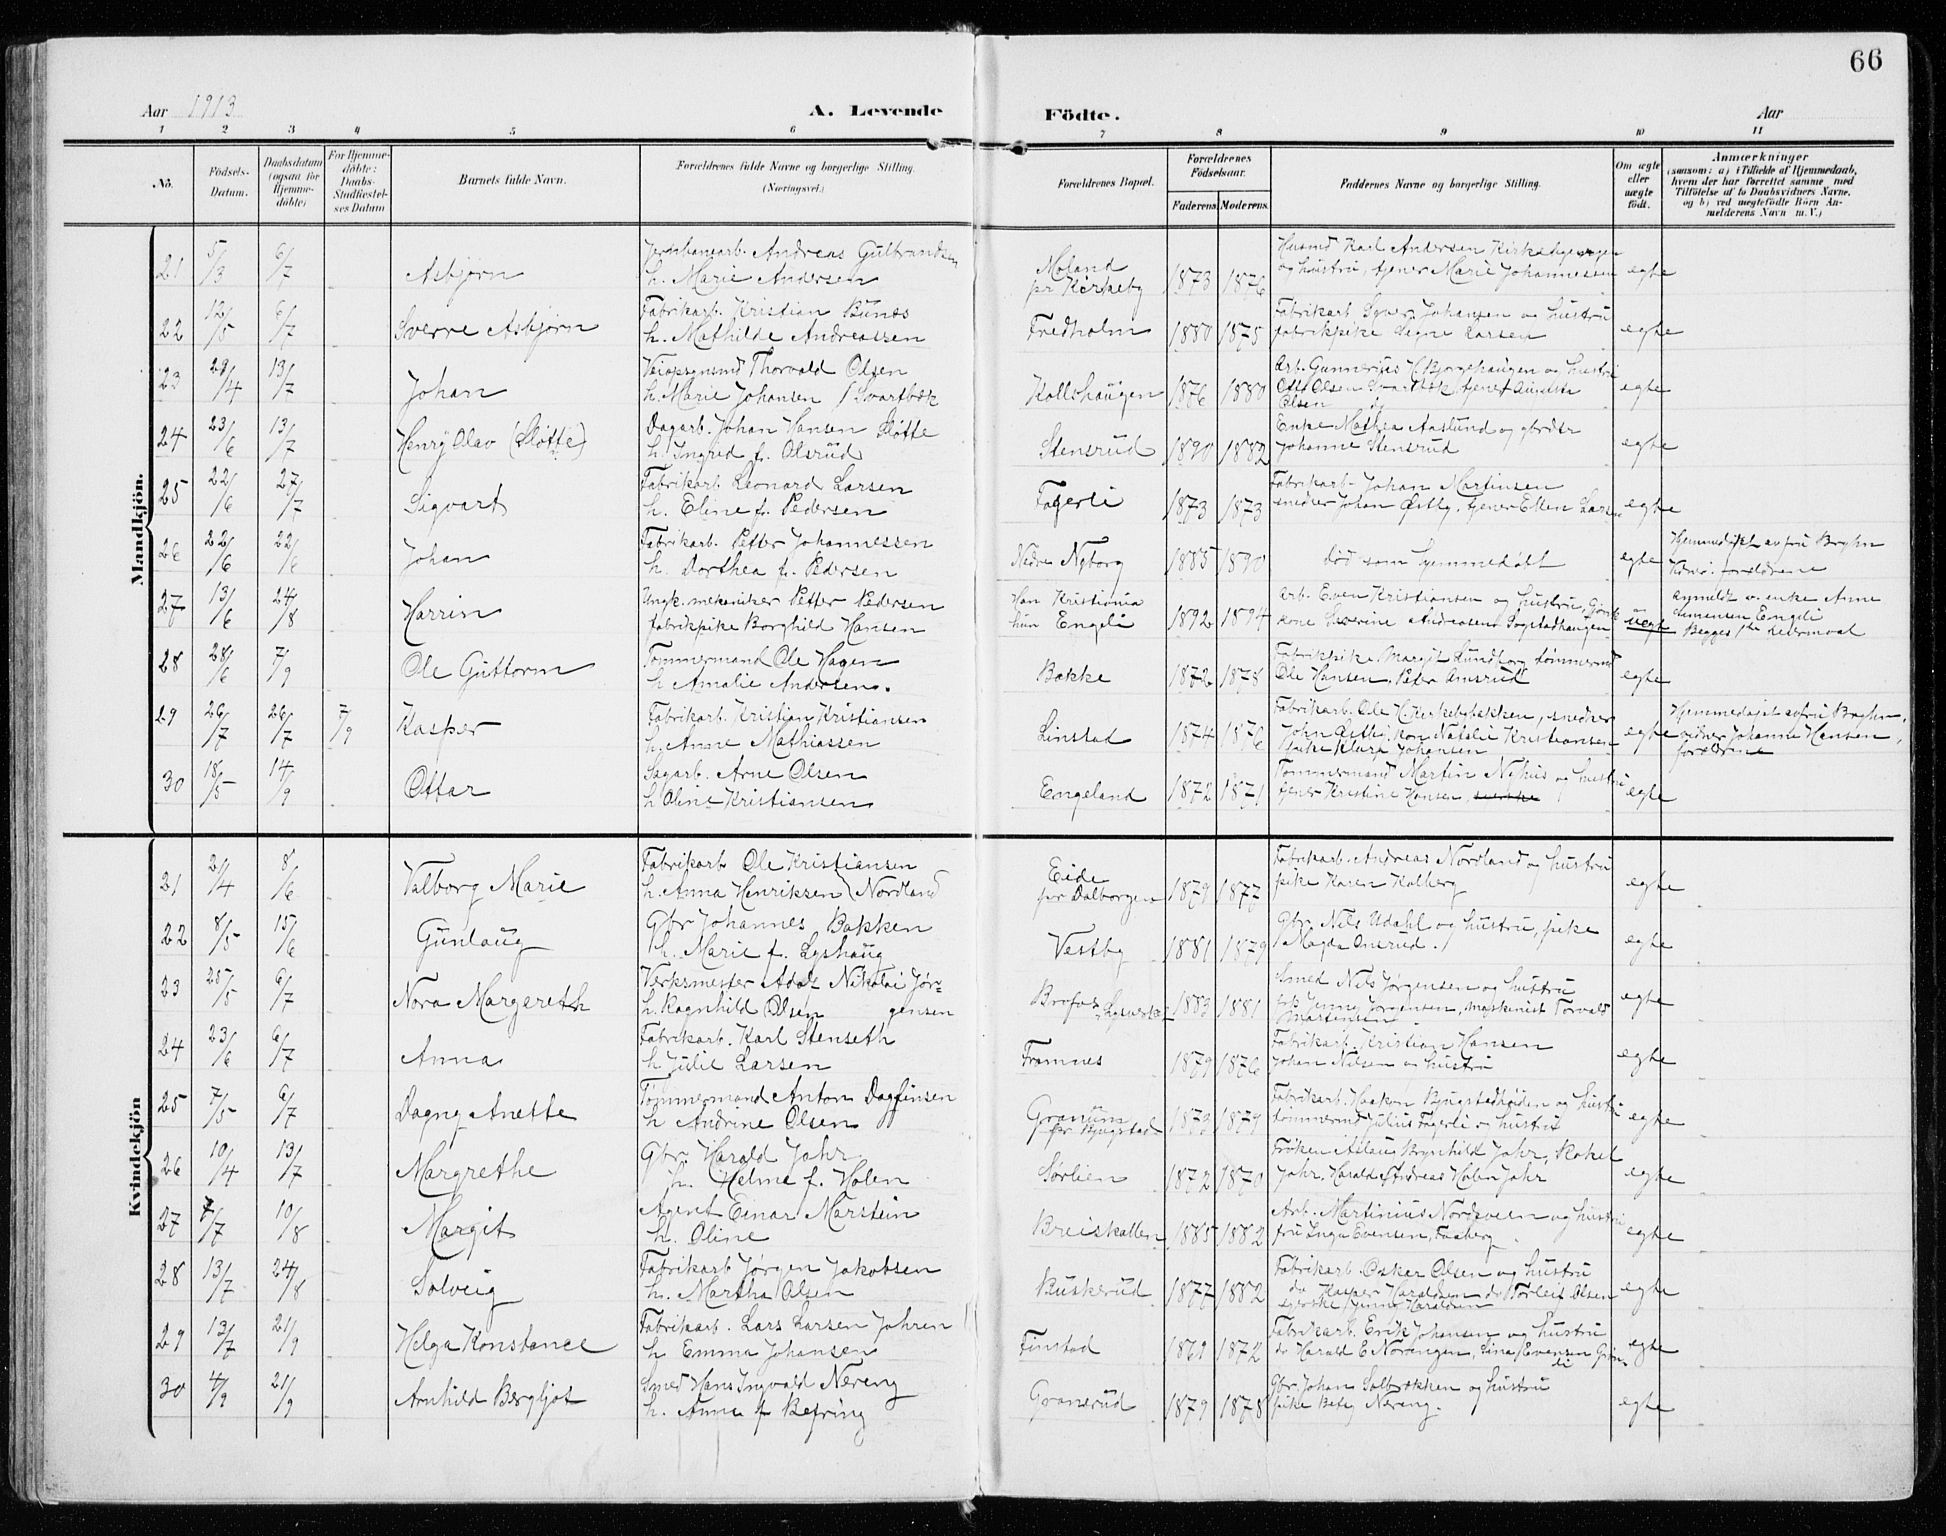 66
Aar 1913
A. Levende
Födte.
Aar
1 2 3 4 5 6 7 8 9 10 11
No.
Födsels-Datum.
Daabsdatum (ogsaa for Hjemme-döbte)
For Hjemme-döbte: Daabs-Stadfæstel-ses Datum
Barnets fulde Navn.
Forældrenes fulde Navne og borgerlige Stilling. (Næringsvei.)
Forældrenes Bopæl.
Forældrenes Födselsaar.
Faderens Moderens
Faddernes Navne og borgerlige Stilling.
Om ægte eller uægte födt.
Anmærkninger
(saasom: a) i Tilfælde af Hjemmedaab, hvem der har forrettet samme med Tilföielse af to Daabsvidners Navne, og b) ved uægtefödte Börn An-melderens Navn m. V.)
Mandkjön.
21 5/3 6/7 Asbjørn
Jernbanearb. Andreas Gulbrandsen
h. Marie Andersen
Moland pr Kirkeby 1873 1876
Karl Andersen
og hustru, tjener Marie Johannessen
egte
22 12/5 6/7 Sverre Asbjørn
Fabrikarb. Kristian Bunæs
h. Mathilde Andreassen
Fredholm 1880 1875
Fabrikarb Syver Johansen og hustru
fabrikpike Signe Larsen
egte
23 29/4 13/7 Johan
Thorvald Olsen
h. Marie Johansen / Svartbæk
Kollshaugen 1876 1880
Arb. Gunnerius og hustru
Otto Olsen Svartbæk, tjener
Olsen
egte
24 23/6 13/7 Henry Olav (Sløtte)
Dagarb. Johan Hansen Sløtte
h. Ingrid f. Olsrud
Stensrud 1890 1882
Enke Mathea Aaslund og
Johanne Stensrud
egte
25 22/6 27/7 Sigvart
Fabrikarb. Leonard Larsen
h. Eline f. Pedersen
Fagerli 1873 1873
Fabrikarb. Johan Martinsen
snedker Johan Østby, tjener Ellen Larsen
egte
26 22/6 22/6 Johan
Fabrikarb. Petter Johannessen
h. Dorthea f. Pedersen
Nedre Nyborg 1885 1890
død som hjemmedøbt
egte
Hjemmedøbt av fru Bryhn
forældrene
27 13/6 24/8 Harrin
Ungk. mekaniker Petter Pedersen
fabrikpike Borghild Hansen
Han Kristiania
hun Engeli 1892 1894
Arb. Even Kristiansen og hustru,
kone Severine Andreasen
uegte
Anmeldt v. enke Anne
Simensen Engeli
Begges 1ste leiermaal
28 28/6 7/9 Ole Guttorm
Tømmermand Ole Hagen
h. Amalie Andersen.
Bakke 1872 1878
Fabrikpike Margit Lundborg tømmermd
Ole Hansen, Peter Amsrud
egte
29 26/7 26/7 7/9 Kasper
Fabrikarb. Kristian Kristiansen
h. Anne Mathiassen
Linstad 1874 1876
Fabrikarb. Ole Kirkebybakken, snedker
John kon Natalie Kristiansen
pike Klara Johansen
egte
Hjemmedøbt av fru Bryhn,
vidner Johanne Hansen,
forældrene
30 18/5 14/9 Ottar
Sagarb. Arne Olsen
h Oline Kristiansen
Engeland 1872 1871
Tømmermand Martin Nyhus og hustru
tjener Kristine Hansen
egte
Kvindekjön
21 21/4 8/6 Valborg Marie
Fabrikarb Ole Kristiansen
h. Anna Henriksen / Nordland
Eide pr Dalborgen 1879 1877
Fabrikarb. Andreas Nordland og hustru
pike Karen Kolberg
egte
22 8/5 15/6 Gunlaug
Gbr Johannes Bakken
h. Marie f. Lyshaug
Vestby 1881 1879
Gbr. Nils Udahl og hustru, pike
Magda Onsrud.
egte
23 25/5 6/7 Nora Margareth
Verksmester Adolf Nikolai Jør-
h. Ragnhild Olsen gensen
Brofos 1883 1881
Smed Nils Jørgensen og hustru
Jenny Jørgensen, maskinist Torvald
Martensen
egte
24 23/6 6/7 Anna
Fabrikarb. Karl Stenseth
h Julie Larsen
Framnes 1879 1876
Fabrikarb. Kristian Hansen
Johan Nilsen og hustru
egte
25 7/5 6/7 Dagny Anette
Tømmermand Anton Dagfinsen
h Andrine Olsen
Granum pr Bjugstad 1873 1879
Fabrikarb. Haaken Bjugstadhøiden og hustru
tømmermd Julius Fagerli og hustru
egte
26 10/4 13/7 Margrethe
Gbr. Harald Jahr
h. Helme f. Holen
Sørlien 1872 1870
Frøken Aslaug Brynhild Jahr, Rakel
Jahr, Harald Andreas Holen Jahr
egte
27 7/7 10/8 Margit
Agent Einar Marstein
h. Oline
Breiskallen 1885 1882
Arb. Martinius Nordsveen og hustru
fru Inga Evensen, Faaberg.
egte
28 13/7 24/8 Solveig
Fabrikarb Jørgen Jakobsen
h. Martha Olsen
Buskerud 1877 1882
Fabrikarb Oskar Olsen og hustru
do Kasper Haraldsen do Torleif Olsen
Haraldsen
egte
29 13/7 21/9 Helga Konstance
Fabrikarb. Lars Larsen Jahren
h Emma Johansen
Finstad 1869 1872
Fabrikarb. Erik Johansen og hustru
do Harald E Norengen, Lina Evensen
egte
30 4/9 21/9 Arnhild Bergljot
Smed Hans Ingvald Nereng
h. Anna f Befring
Gransrud 1879 1878
Gbr. Johan Solbrækken og hustru
pike Betsy Nereng.
egte